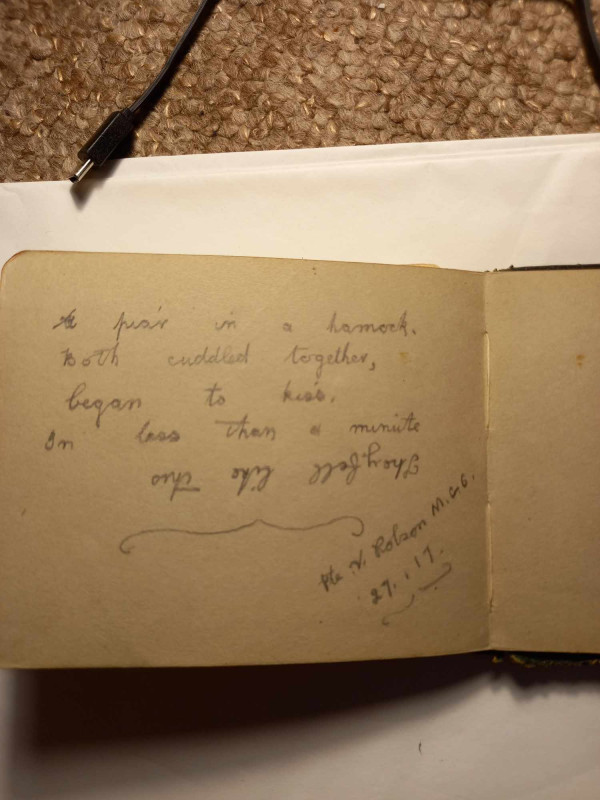 A pair in a hamock.
Both cuddled together,
began to kiss.
In less than a miniute
They, fell like this
Pte. V. Robson M.G.C.
27.1.17.